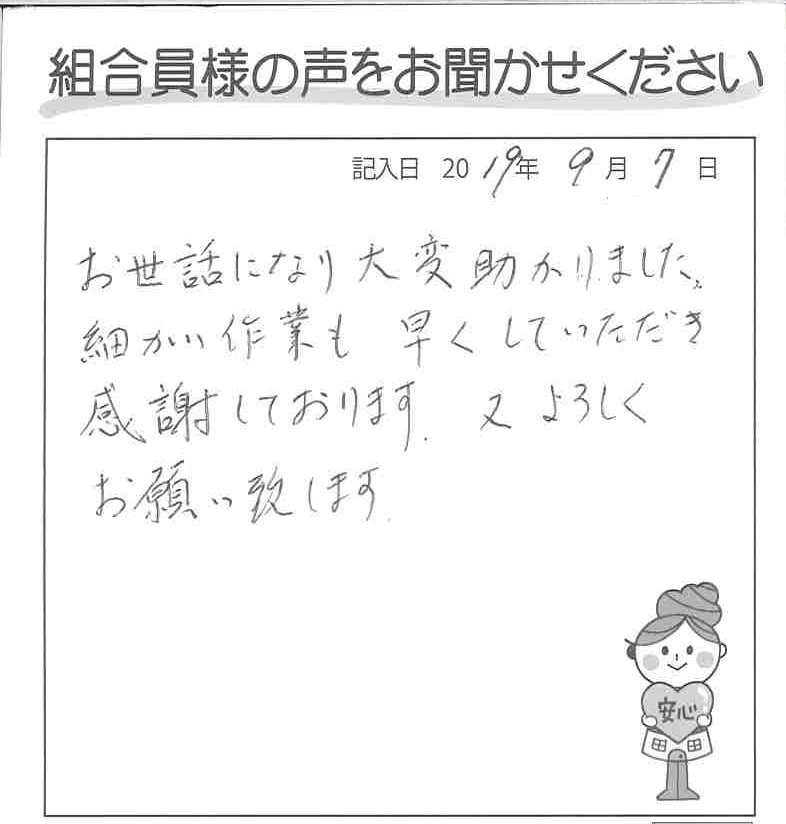 組合員様の声をお聞かせください
記入日 2019年 9月 7日
お世話になり大変助かりました。
細かい作業も 早くしていただき
感謝しております. 又よろしく
お願い致します.
安心